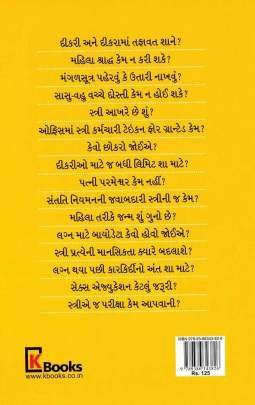 દીકરી અને દીકરામાં તફાવત શાને?
મહિલા શ્રાદ્ધ કેમ ન કરી શકે?
મંગળસૂત્ર પહેરવું કે ઉતારી નાખવું?
સાસુ-વહુ વચ્ચે દોસ્તી કેમ ન હોઈ શકે?
સ્ત્રી આખરે છે શું?
ઓફિસમાં સ્ત્રી કર્મચારી ટેઇકન ફોર ગ્રાન્ટેડ કેમ?
કેવો છોકરો જોઈએ?
દીકરીઓ માટે જ બધી લિમિટ શા માટે?
પત્ની પરમેશ્વર કેમ નહીં?
સંતતિ નિયમનની જવાબદારી સ્ત્રીની જ કેમ?
મહિલા તરીકે જન્મ શું ગુનો છે?
લગ્ન માટે બાયોડેટા કેવો હોવો જોઈએ?
સ્ત્રી પ્રત્યેની માનસિકતા ક્યારે બદલાશે?
લગ્ન થયા પછી કારકિર્દીનો અંત શા માટે?
સેક્સ એજ્યુકેશન કેટલું જરૂરી?
સ્ત્રીએ જ પરીક્ષા કેમ આપવાની?
K Books
www.kbooks.co.in
Rs. 125